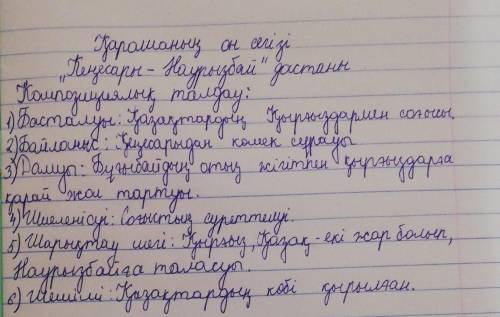 Қарашаның он сегізі
"Кенесары - Наурызбай" дастаны
Композициялық талдау:
1) Басталуы: Қазақтардың Қырғыздармен соғысы.
2) Байланыс: Кенесарыдан көмек сұрауы
3) Дамуы: Бұғыбайдың отыз жігітпен қырғыздарға
қарай жол тартуы.
4) Шиеленісуі: Соғыстың суреттелуі.
5) Шарықтау шегі: Қырғыз, Қазақ - екі жар болып,
Наурызбайға таласуы.
6) Шешімі: Қазақтардың көбі қырылған.